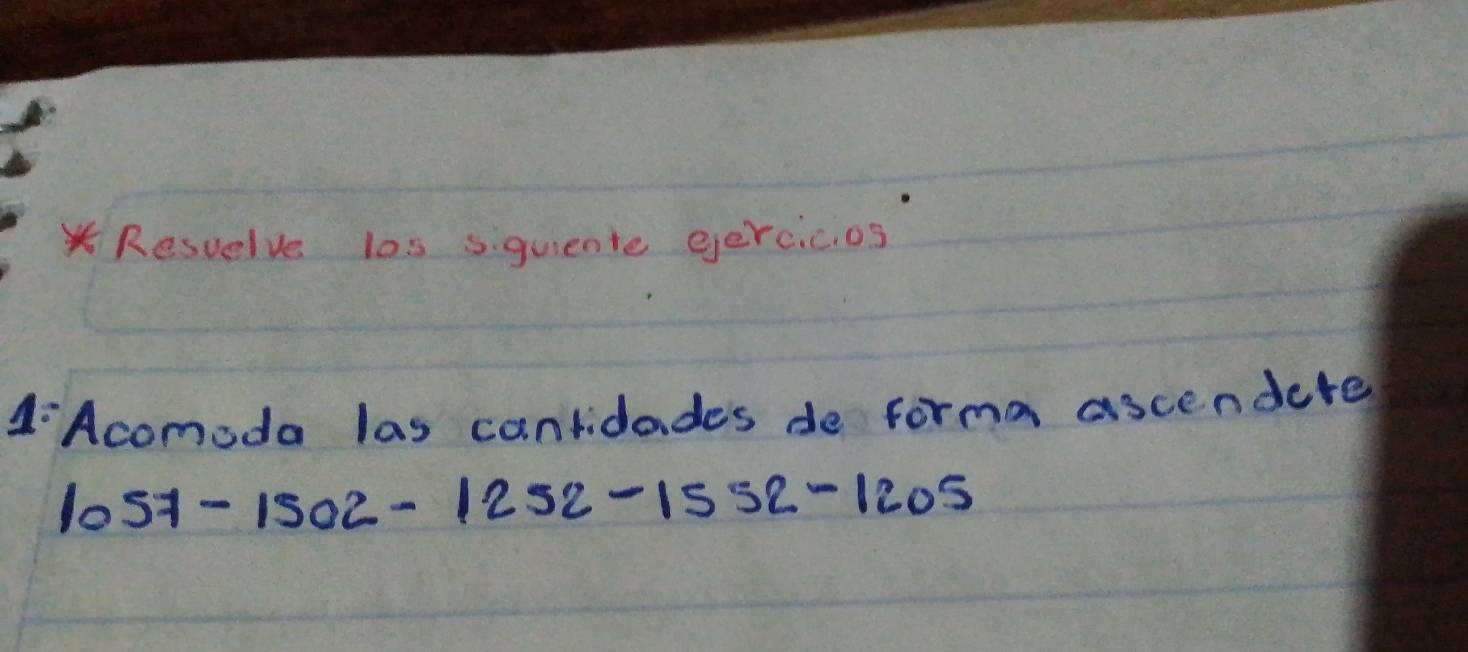 * Resuelve los siguiente ejercicios
1:- Acomoda las cantidades de forma ascendete
1057 - 1502 - 1252 - 1552 - 1205